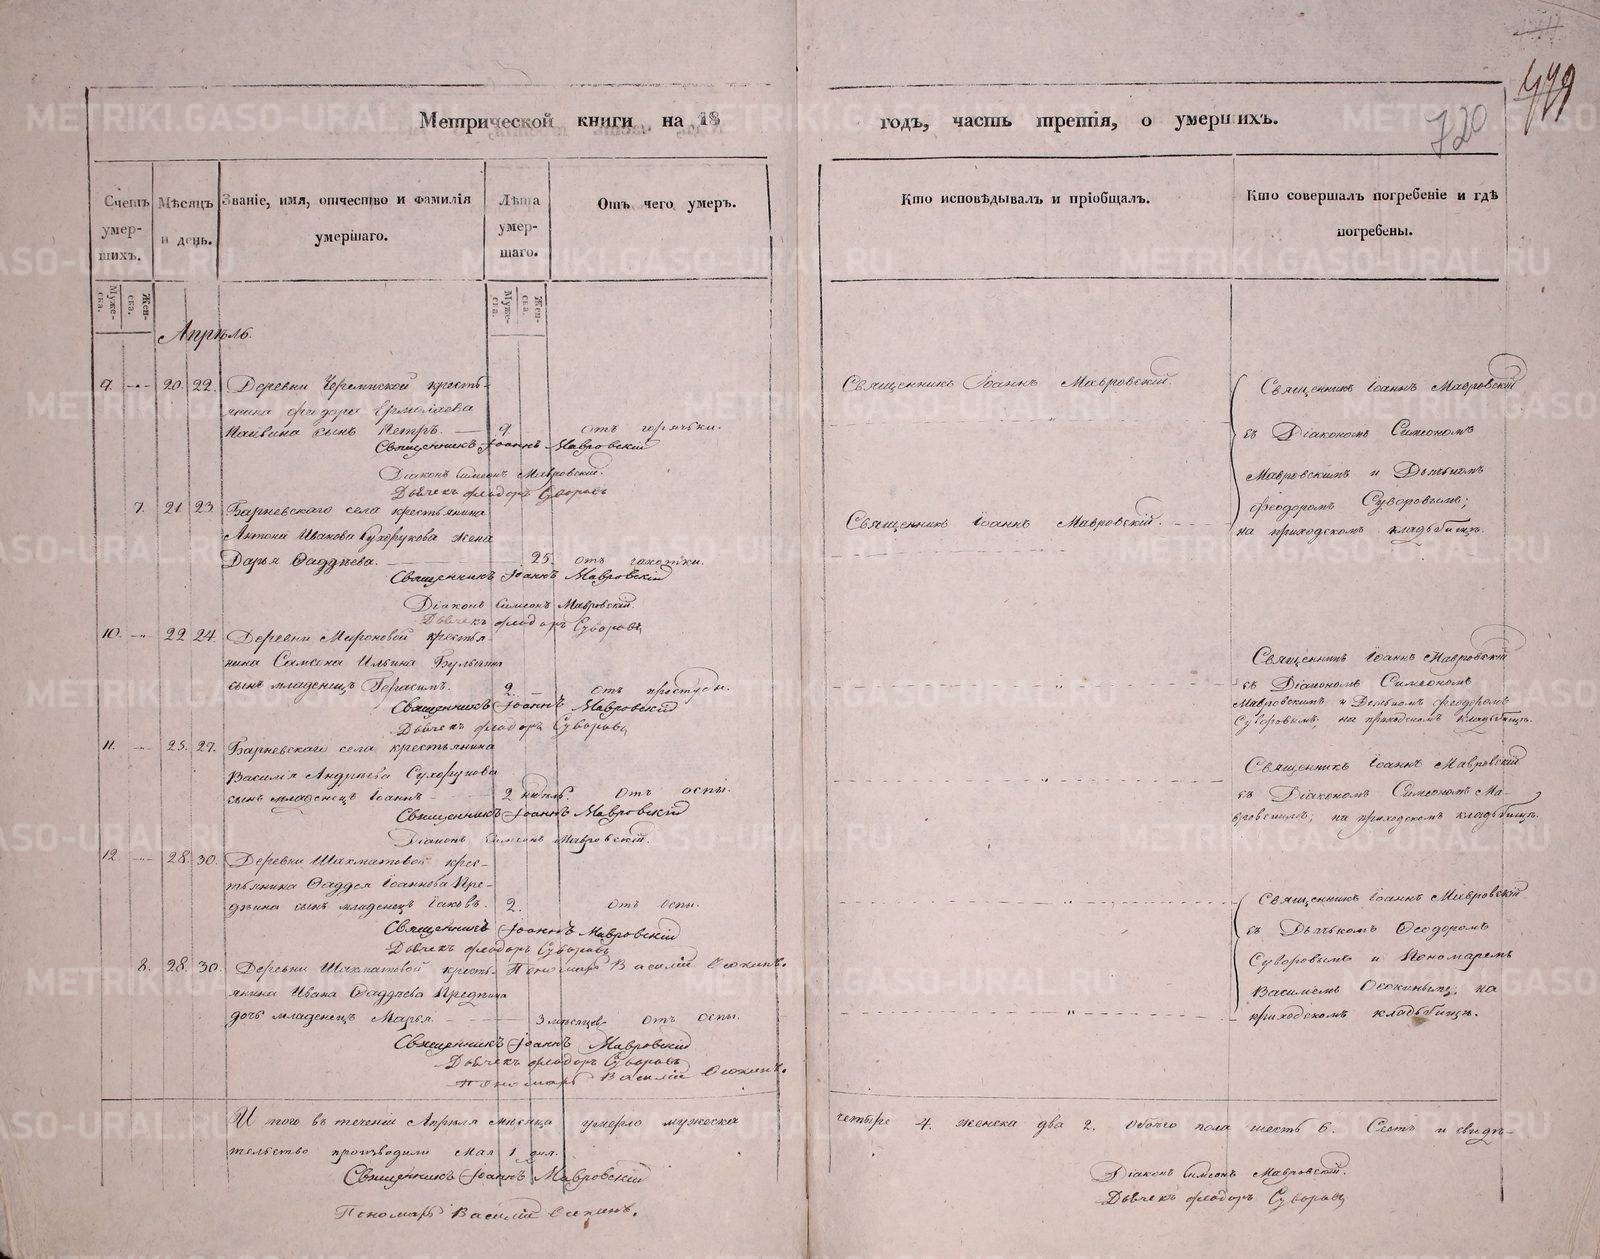 779
720
Метрической книги на 18
годъ, часть третія, о умершихъ.
Счетъ умер-шихъ.
Мѣсяцъ и день.
Званіе, имя, отчество и фамилія умершаго.
Лѣта умер-шаго.
Отъ чего умеръ.
Кто исповѣдывалъ и пріобщалъ.
Кто совершалъ погребеніе и гдѣ погребены.
Муже-ска.
Жен-ска.
Муже-ска.
Жен-ска.
Апрѣль.
9. 20. 22. Деревни Черемисской кресть-
янина Ѳеодора Ермолаева
Пайвина сынъ Петръ. 9 отъ горячки.
Священникъ Іоаннъ Мавровскій
Діаконъ Симеонъ Мавровскій.
Дьячекъ Ѳеодоръ Суворовъ
Священникъ Іоаннъ Мавровскій.
Священникъ Іоаннъ Мавровскій
съ Діакономъ Симеономъ
Мавровскимъ и Дьячкомъ
Ѳеодоромъ Суворовымъ;
на приходскомъ кладбищѣ.
7. 21. 23. Барневскаго села крестьянина
Антона Иванова Сухорукова жена
Дарья Ѳаддѣева. 25. отъ чахотки.
Священникъ Іоаннъ Мавровскій
Діаконъ Симеонъ Мавровскій.
Дьячекъ Ѳеодоръ Суворовъ
Священникъ Іоаннъ Мавровскій.
10. 22. 24. Деревни Мироновой крестья-
нина Самсона Ильина
сынъ младенецъ Герасимъ. 2 отъ простуды.
Священникъ Іоаннъ Мавровскій
Дьячекъ Ѳеодоръ Суворовъ
Священникъ Іоаннъ Мавровскій
съ Діакономъ Симеономъ
Мавровскимъ и Дьячкомъ Ѳеодоромъ
Суворовымъ; на приходскомъ кладбищѣ.
11. 25. 27. Барневскаго села крестьянина
Василія Андрѣева Сухорукова
сынъ младенецъ Іоаннъ 2 недѣль. отъ оспы.
Священникъ Іоаннъ Мавровскій
Діаконъ Симеонъ Мавровскій.
Священникъ Іоаннъ Мавровскій
съ Діакономъ Симеономъ Ма-
вровскимъ; на приходскомъ кладбищѣ.
12. 28. 30. Деревни Шахматовой крес-
тьянина Ѳаддея Іоаннова Пре-
дѣина сынъ младенецъ Іаковъ. 2. отъ оспы.
Священникъ Іоаннъ Мавровскій
Дьячекъ Ѳеодоръ Суворовъ
Пономарь Василій Осокинъ.
Священникъ Іоаннъ Мавровскій
съ Дьячкомъ Ѳеодоромъ
Суворовымъ и Пономаремъ
Василіемъ Осокинымъ; на
приходскомъ кладбищѣ.
8. 28. 30. Деревни Шахматовой кресть-
янина Ивана Ѳаддѣева Предѣина
дочь младенецъ Марья. 3 мѣсяцев. отъ оспы.
Священникъ Іоаннъ Мавровскій
Дьячекъ Ѳеодоръ Суворовъ
Пономарь Василій Осокинъ.
И того въ теченіи Апрѣля мѣсяца умерло мужеска
четыре 4. женска два 2. обоего пола шесть 6. Счетъ и свидѣ-
тельство производили Мая 1 дня.
Священникъ Іоаннъ Мавровскій
Діаконъ Симеонъ Мавровскій.
Дьячекъ Ѳеодоръ Суворовъ
Пономарь Василій Осокинъ.
METRIKI.GASO-URAL.RU